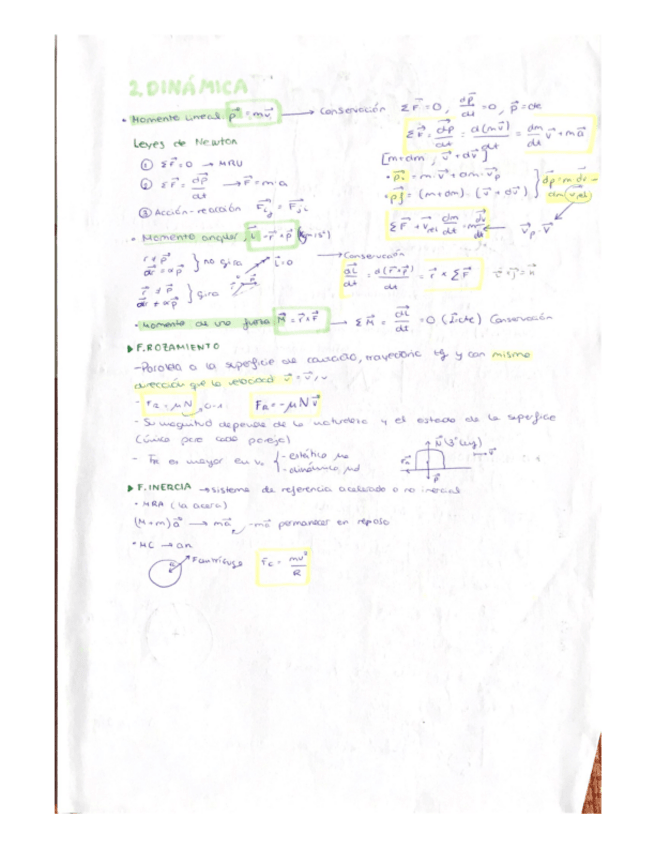 2. DINÁMICA
• Momento lineal: p⃗ = mv⃗ → Conservación ΣF⃗ = 0, dp⃗/dt = 0, p⃗ = cte
ΣF⃗ = dp⃗/dt = d(mv⃗)/dt = dm/dt v⃗ + ma⃗
Leyes de Newton
① ΣF⃗ = 0 → MRU
② ΣF⃗ = dp⃗/dt → F⃗ = m·a
③ Acción-reacción F⃗ij = F⃗ji
[m+dm, v⃗+dv⃗]
• pi = m·v⃗ + dm·v⃗p
• pf = (m+dm)·(v⃗+dv⃗)
dp = m dv - dm (vrel)
ΣF⃗ + v⃗rel dm/dt = m dv⃗/dt
v⃗p - v⃗
• Momento angular, L⃗ = r⃗ × p⃗
} no gira L⃗ = 0
} gira
→ Conservación
dL⃗/dt = d(r⃗×p⃗)/dt = r⃗ × ΣF⃗
• Momento de una fuerza M⃗ = r⃗×F⃗ → ΣM⃗ = dL⃗/dt = 0 (L⃗ cte) Conservación
▶ F. ROZAMIENTO
- Paralela a la superficie de contacto, trayectoria tg y con misma
dirección que la velocidad v⃗ = v⃗/v
- FR = μN 0-1 FR = -μNv⃗
- Su magnitud depende de la naturaleza y el estado de la superficie
(única para cada pareja)
- FR es mayor en v₀ { - estática μe
- dinámica μd
N⃗ (3ª Ley)
v⃗
P⃗
▶ F. INERCIA → sistema de referencia acelerado o no inercial
• MRA (la acera)
(M+m)a⃗ → ma⃗, -ma⃗ permanecer en reposo
• MC → an
R F centrífuga
Fc = mv²/R